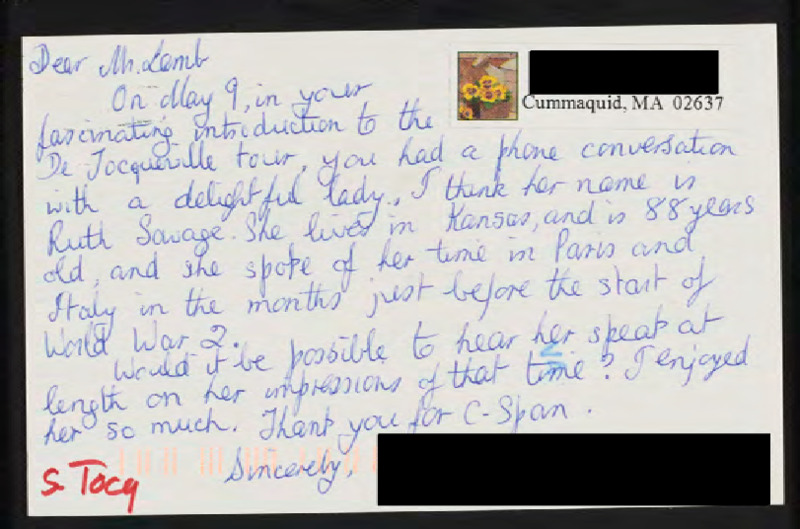 Dear Mr. Lamb
On May 9, in your
fascinating introduction to the
De Tocqueville tour, you had a phone conversation
with a delightful lady, I think her name is
Ruth Savage. She lives in Kansas, and is 88 years
old, and she spoke of her time in Paris and
Italy in the months just before the start of
World War 2.
Would it be possible to hear her speak at
length on her impressions of that time? I enjoyed
her so much. Thank you for C-Span.
Sincerely,
Cummaquid, MA 02637
S. Tocq